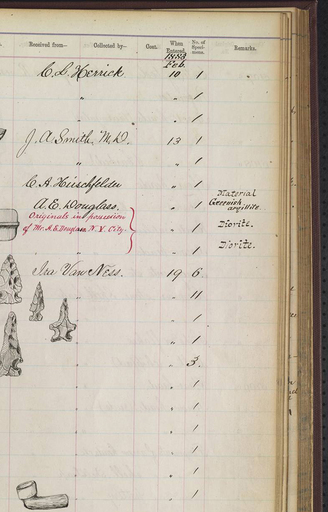 Received from— Collected by— Cost. When Entered. No. of Speci- mens. Remarks.
1883
Feb.
C. L. Herrick 10 1
" " 1
" " 1
J. A. Smith, M.D. 13 1
" " 1
C. A. Hirschfelder " 1
Material
A. E. Douglass. " 1 Greenish argillite.
Originals in possession
of Mr. A. E. Douglass, N. Y. City. " 1 Diorite.
" 1 Diorite.
Ira Van Ness. 19 6
" " 11
" " 1
" " 1
" " 3
" " 1
" " 1
" " 1
" " 1
" " 1
" " 1